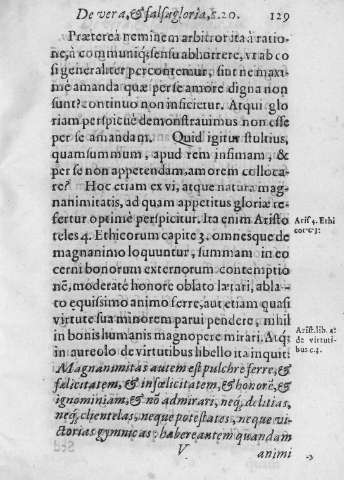 De vera, & falsa gloria, s.20. 129
Prætereà neminem arbitror ita à ratio-
ne, à communiq; sensu abhorrere, vt ab co
si generaliter percontemur, sint ne maxi-
mè amanda quæ per se amore digna non
sunt? continuo non inficietur. Atqui glo
riam perspicuè demonstrauimus non esse
per se amandam. Quid igitur stultius,
quam summum, apud rem infimam, &
per se non appetendam, amorem colloca-
re? Hoc etiam ex vi, atque natura mag-
nanimitatis, ad quam appetitus gloriæ re-
fertur optimè perspicitur. Ita enim Aristo
teles 4. Ethicorum capite 3. omnesque de
magnanimo loquuntur, summam in eo
cerni bonorum externorum contemptio
nē, moderatè honore oblato lætari, abla-
to equissimo animo ferre, aut etiam quasi
virtute sua minorem parui pendere, nihil
in bonis humanis magnopere mirari. Atq;
in aureolo de virtutibus libello ita inquit:
Magnanimitas autem est pulchre ferre, &
felicitatem, & infœlicitatem, & honorē, &
ignominiam, & nō admirari, neq; delitias,
neq; clientelas, neque potestates, neque vi-
ctorias gymnicas; habere antem quandam
V. animi
Arist. 4. Ethi
cor. c. 3:
Arist. lib. a:
de virtuti-
bus c. 4.